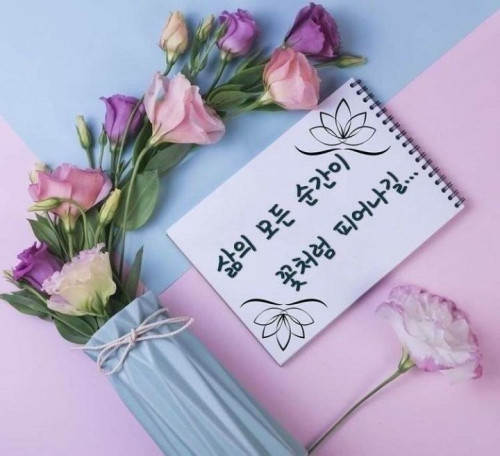 삶의 모든 순간이
꽃처럼 피어나길...